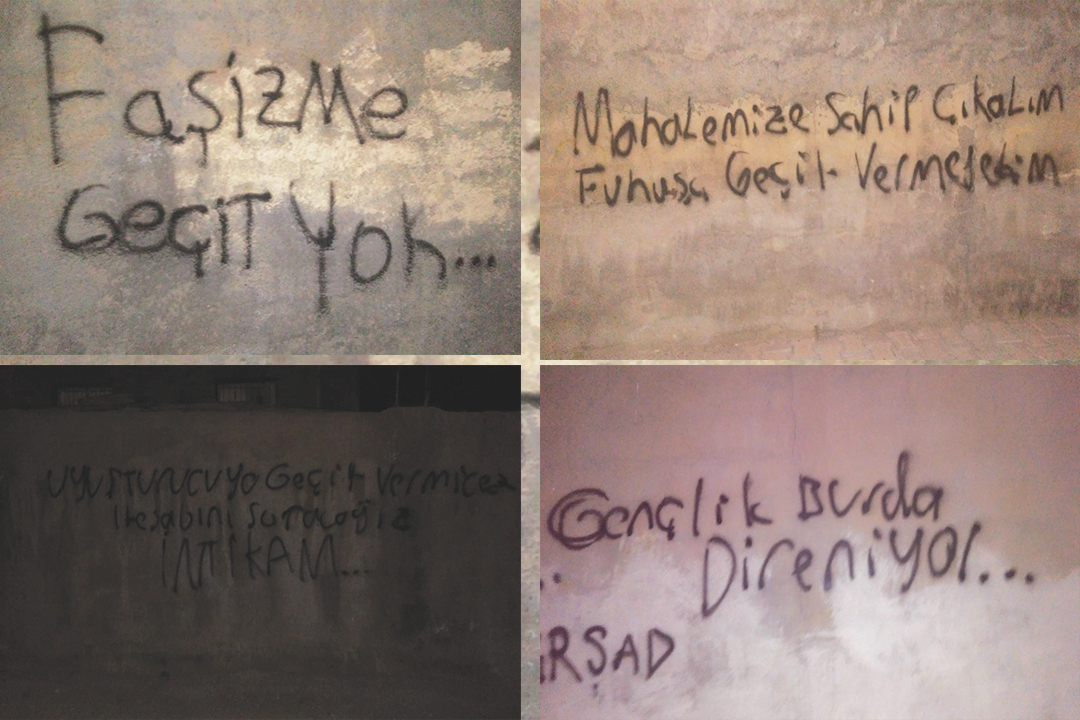 Faşizme
Geçit Yok...
Mahalemize Sahip Çıkalım
Fuhuşa Geçit Vermeyelim
UYUŞTURUCUYA Geçit Vermicez
Hesabını Soracağız
İNTİKAM...
Gençlik Burda
Direniyor...
..
RŞAD